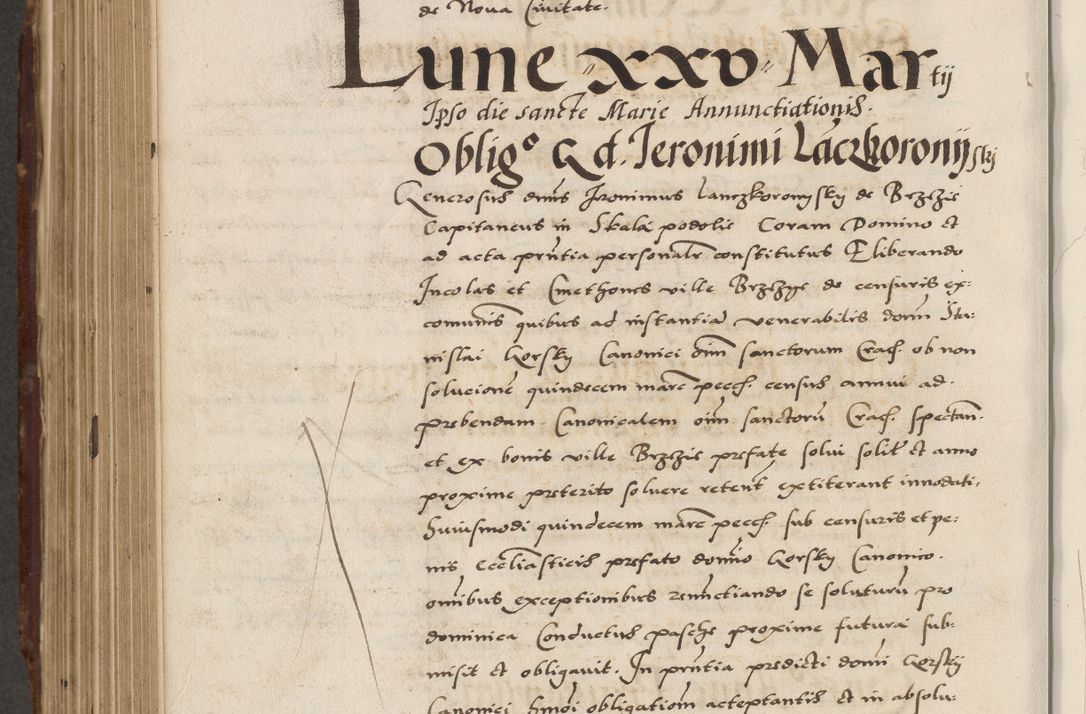 de Nova Civitate.
Lune xxv Martij
Ipso die sancte Marie Annunctiationis.
Obligo G d. Ieronimi Láczkoronijskj
Generosus dnũs Ironimus Lanczkoronysky de Brzezie
Capitaneus in Skala podolie Coram Domino et
ad acta prñtia personalr constitutus Eliberando
Incolas et Cmethones ville Brzezye de censuris ex:
comunĩs quibus ad instantiã venerabilis domĩ Sta:
nislai Gorsky Canonici õim sanctorum Crac. ob non
solucionẽ quindecem marc̃ pecc. census annui ad.
prebendam Canonicalem oim̃ sanctorũ Crac. spectan.
et ex bonis ville Brzezie prefate solui solit̃ et anno
proxime preterito soluere retent̃ extiterant innodati,
Huiusmodi quindecem marc̃ pecc. sub censuris et pe:
nis Eccl̃iasticis prefato domĩo Gorsky Canonico.
omĩbus exceptionibus renũctiando se soluturũ pro
dominica Conductus pasche proxime futura sub:
misit et obligauit. In prñtia predicti domĩ Gorsky
Canonici hm̃oi obligatiom̃ acceptantis et in absolu: